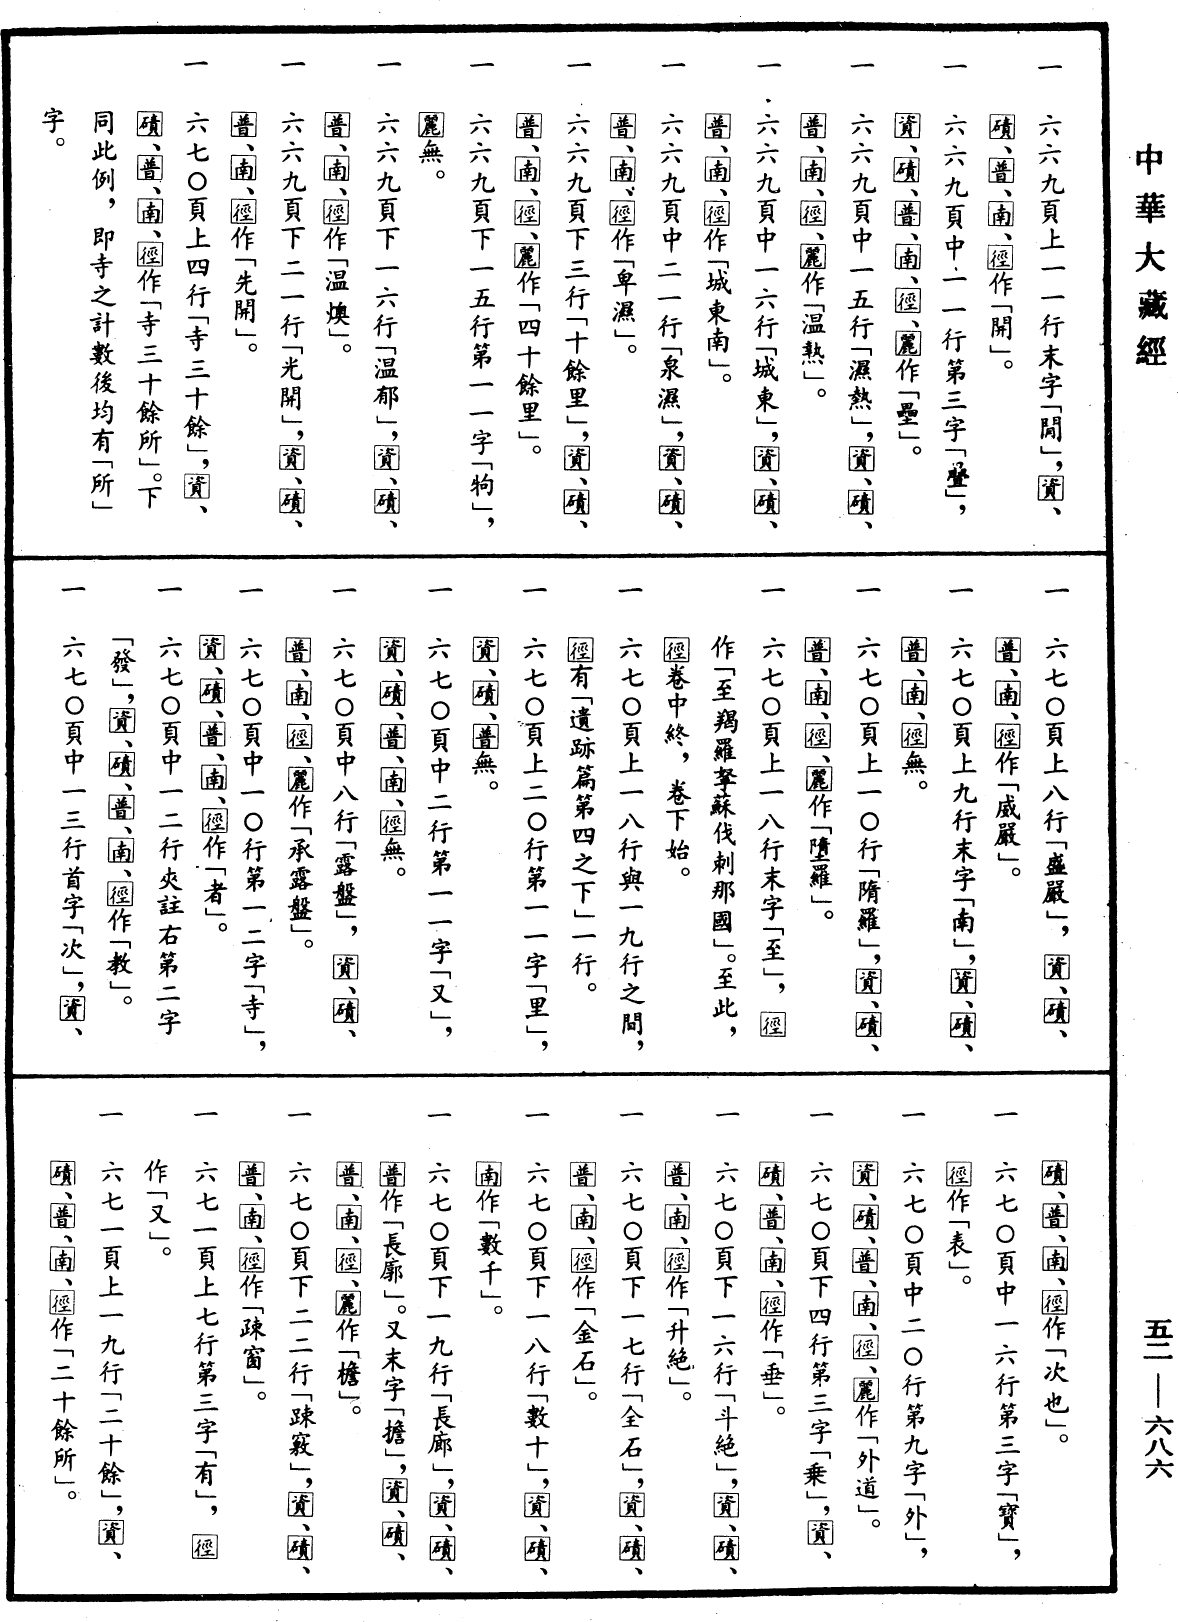 中華大藏經
五二——六八六
一　六六九頁上一一行末字「閒」，資、
磧、普、南、徑作「開」。
一　六六九頁中一一行第三字「疊」，
資、磧、普、南、徑、麗作「壘」。
一　六六九頁中一五行「濕熱」，資、磧、
普、南、徑、麗作「温熟」。
一　六六九頁中一六行「城東」，資、磧、
普、南、徑作「城東南」。
一　六六九頁中二一行「泉濕」，資、磧、
普、南、徑作「卑濕」。
一　六六九頁下三行「十餘里」，資、磧、
普、南、徑、麗作「四十餘里」。
一　六六九頁下一五行第一一字「徇」，
麗無。
一　六六九頁下一六行「温郁」，資、磧、
普、南、徑作「温燠」。
一　六六九頁下二一行「光開」，資、磧、
普、南、徑作「先開」。
一　六七〇頁上四行「寺三十餘」，資、
磧、普、南、徑作「寺三十餘所」。下
同此例，即寺之計數後均有「所」
字。
一　六七〇頁上八行「盛嚴」，資、磧、
普、南、徑作「威嚴」。
一　六七〇頁上九行末字「南」，資、磧、
普、南、徑無。
一　六七〇頁上一〇行「隋羅」，資、磧、
普、南、徑、麗作「墮羅」。
一　六七〇頁上一八行末字「至」，徑
作「至羯羅拏蘇伐刺那國」。至此，
徑卷中終，卷下始。
一　六七〇頁上一八行與一九行之間，
徑有「遺跡篇第四之下」一行。
一　六七〇頁上二〇行第一一字「里」，
資、磧、普無。
一　六七〇頁中二行第一一字「又」，
資、磧、普、南、徑無。
一　六七〇頁中八行「露盤」，資、磧、
普、南、徑、麗作「承露盤」。
一　六七〇頁中一〇行第一二字「寺」，
資、磧、普、南、徑作「者」。
一　六七〇頁中一二行夾註右第二字
「發」，資、磧、普、南、徑作「教」。
一　六七〇頁中一三行首字「次」，資、
磧、普、南、徑作「次也」。
一　六七〇頁中一六行第三字「寶」，
徑作「表」。
一　六七〇頁中二〇行第九字「外」，
資、磧、普、南、徑、麗作「外道」。
一　六七〇頁下四行第三字「乘」，資、
磧、普、南、徑作「垂」。
一　六七〇頁下一六行「斗絶」，資、磧、
普、南、徑作「升絶」。
一　六七〇頁下一七行「全石」，資、磧、
普、南、徑作「金石」。
一　六七〇頁下一八行「數十」，資、磧、
南作「數千」。
一　六七〇頁下一九行「長廊」，資、磧、
普作「長廓」。又末字「擔」，資、磧、
普、南、徑、麗作「檐」。
一　六七〇頁下二二行「踈㝮」，資、磧、
普、南、徑作「疎窗」。
一　六七一頁上七行第三字「有」，徑
作「又」。
一　六七一頁上一九行「二十餘」，資、
磧、普、南、徑作「二十餘所」。